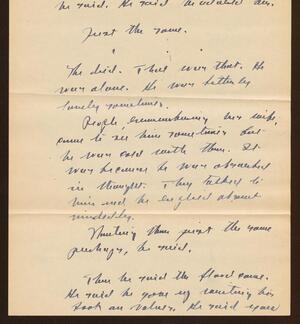 he said. He said
Just the same.
" " "
She died. That was that. He
was alone. He was bitterly
lonely sometimes.
People remembering his wife,
came to see him sometimes but
he was cold with them. It
was because he was absorbed
in thought. They talked to
him and he replied absent
mindedly.
Nothing then just the same
perhaps, he said.
Then he said the flood came.
He said he gave up counting his
on values. He said years